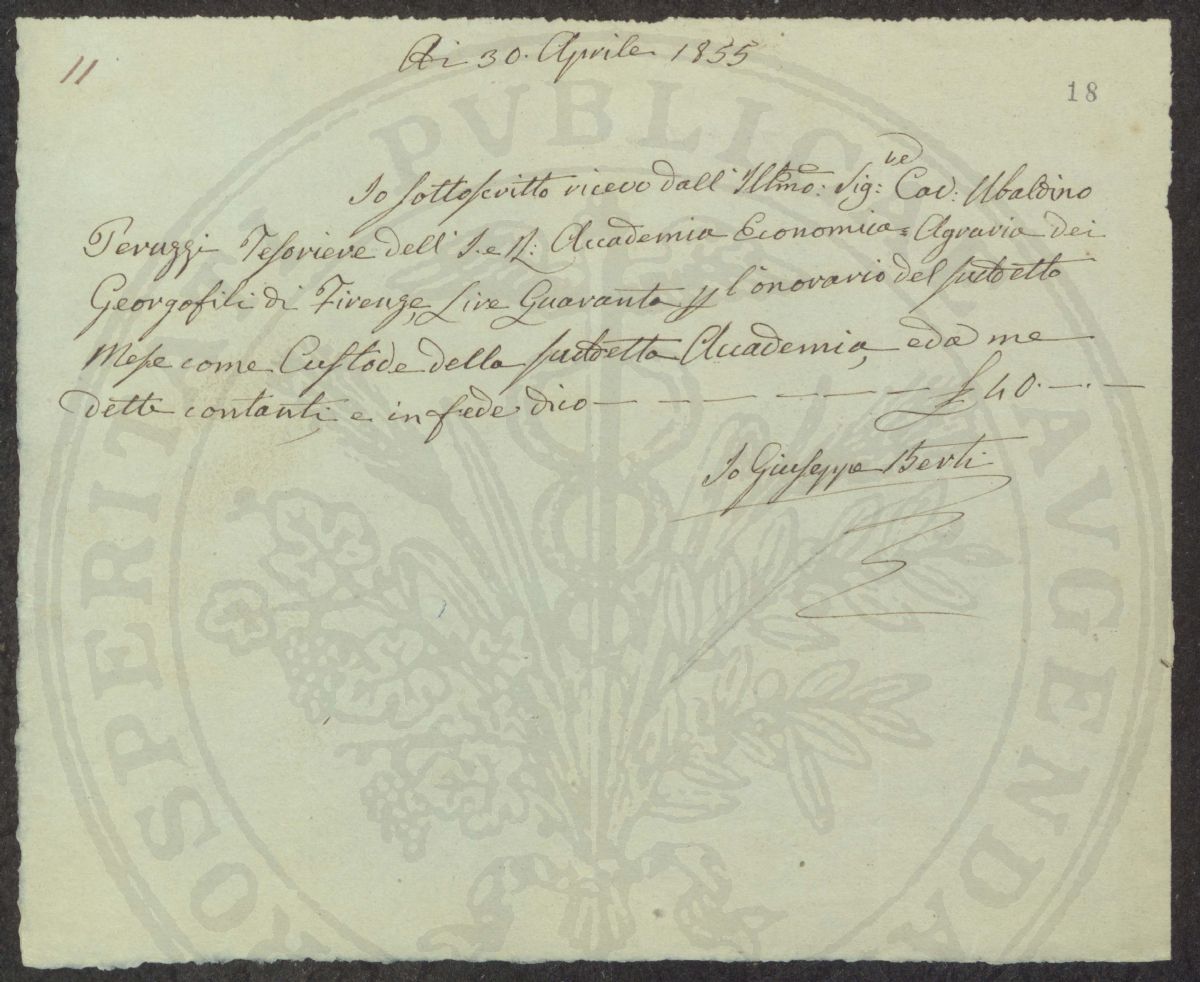 11
Adi 30. Aprile 1855
18
Io sottoscritto ricevo dall' Illmo: Sig:re Cav: Ubaldino
Peruzzi Tesoriere dell' I. e R: Accademia Economica=Agraria dei
Georgofili di Firenze, Lire Quaranta p l'onorario del sudetto
Mese come Custode della sudetta Accademia, ed a me
dette contanti, e in fede dico — — — — — — £ 40. — . —
Io Giuseppe Berti
PROSPERITATI PVBLICAE AVGENDAE